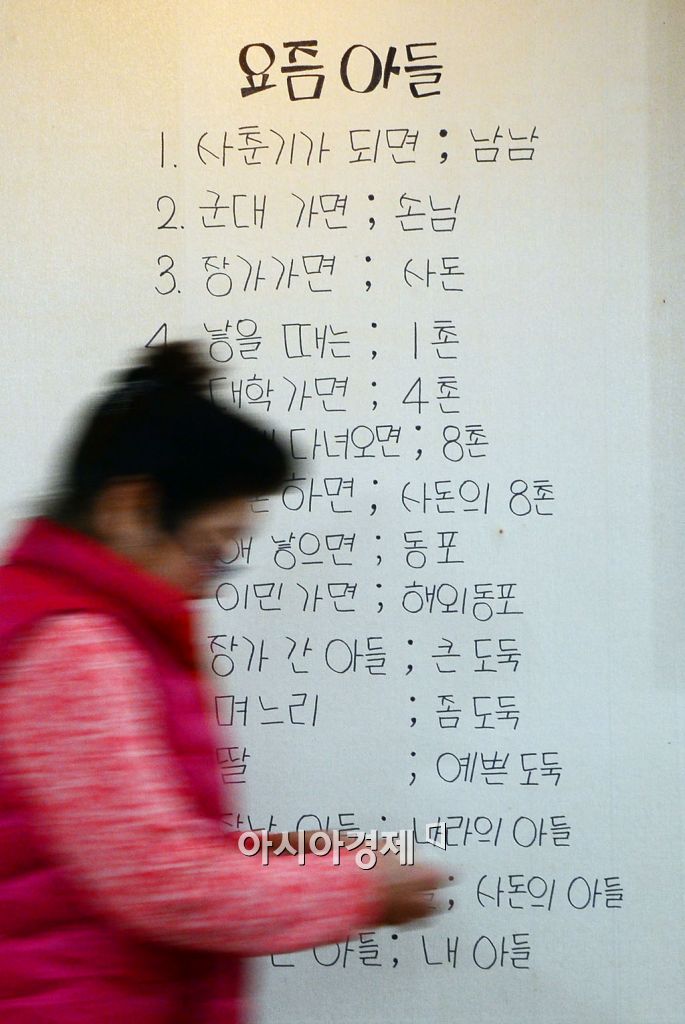 요즘 아들
1. 사춘기가 되면 ; 남남
2. 군대 가면 ; 손님
3. 장가가면 ; 사돈
4. 낳을 때는 ; 1촌
대학 가면 ; 4촌
다녀오면 ; 8촌
하면 ; 사돈의 8촌
애 낳으면 ; 동포
이민 가면 ; 해외동포
장가 간 아들 ; 큰 도둑
며느리 ; 좀 도둑
딸 ; 예쁜 도둑
잘난 아들 ; 나라의 아들
; 사돈의 아들
아들 ; 내 아들
아시아경제